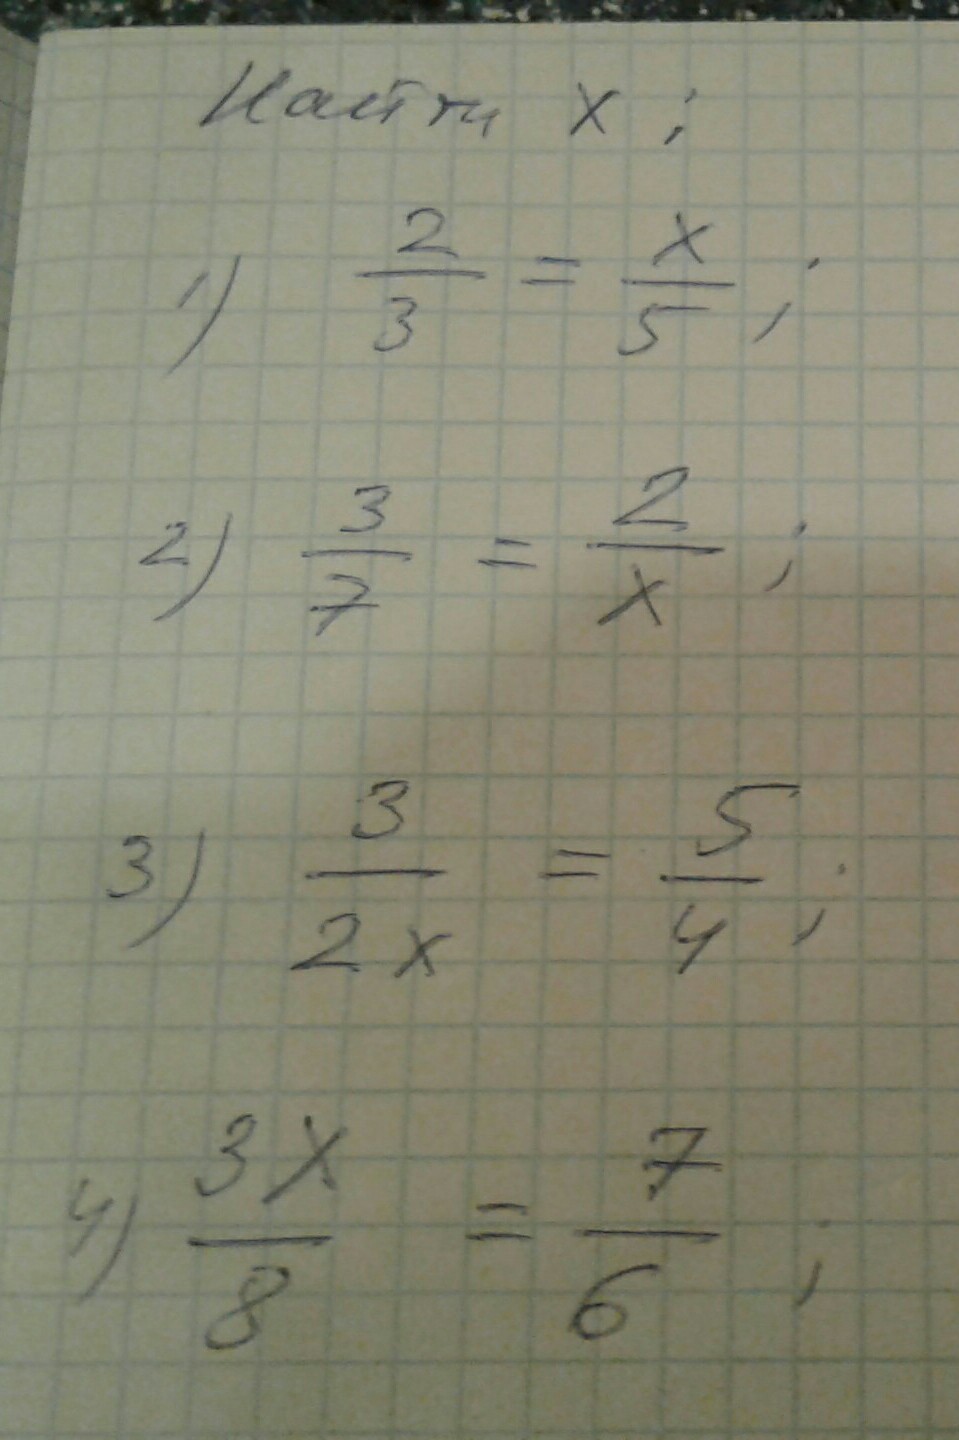 Найти x;
1) 2/3 = x/5;
2) 3/7 = 2/x;
3) 3/2x = 5/4;
4) 3x/8 = 7/6;